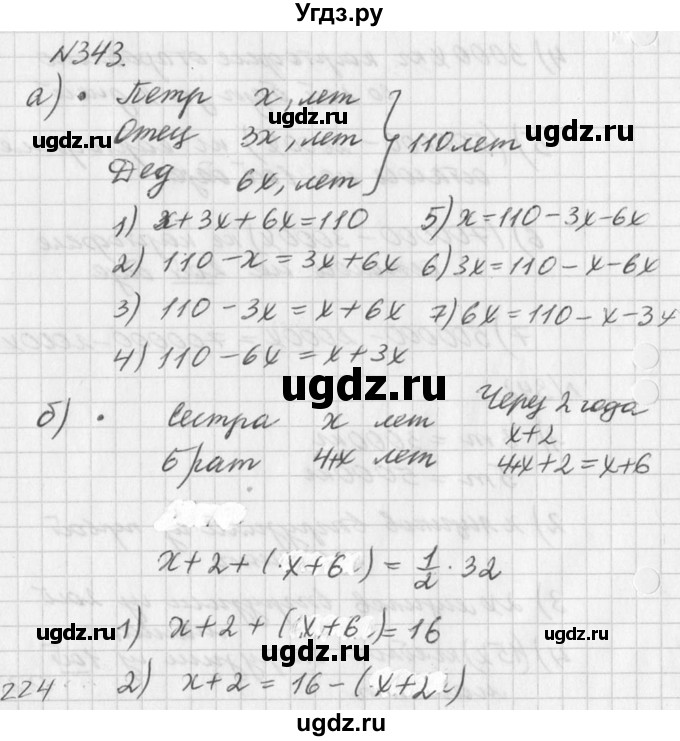 Угдз.ру
N343.
а) • Петр x, лет
Отец 3x, лет } 110 лет
Дед 6x, лет
ugdz.ru ugdz.ru ugdz.ru
1) x+3x+6x=110 5) x=110-3x-6x
2) 110-x=3x+6x 6) 3x=110-x-6x
3) 110-3x=x+6x 7) 6x=110-x-3x
4) 110-6x=x+3x
ugdz.ru
б) • Сестра x лет Через 2 года
x+2
Брат 4+x лет 4+x+2=x+6
ugdz.ru ugdz.ru
x+2+(x+6)=1/2·32
1) x+2+(x+6)=16
ugdz.ru ugdz.ru ugdz.ru
224 2) x+2=16-(x+2)
ugdz.ru